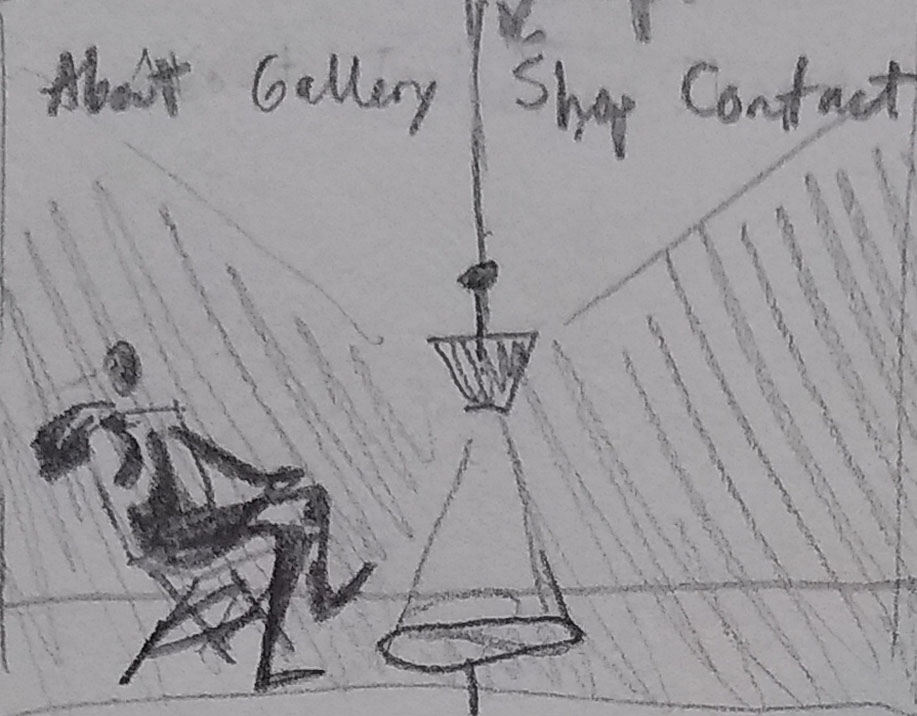 About Gallery Shop Contact